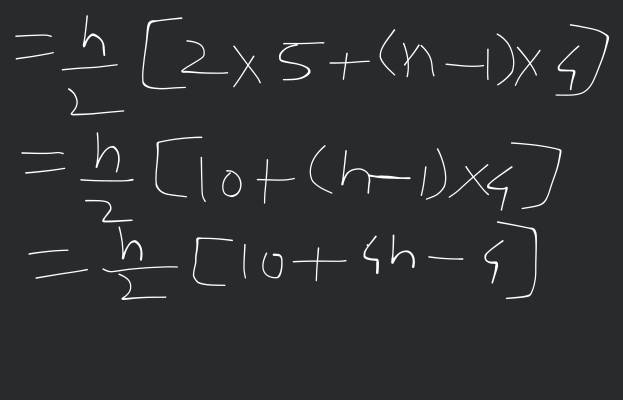 = n/2 [2 × 5 + (n - 1) × 4]
= n/2 [10 + (n - 1) × 4]
= n/2 [10 + 4n - 4]